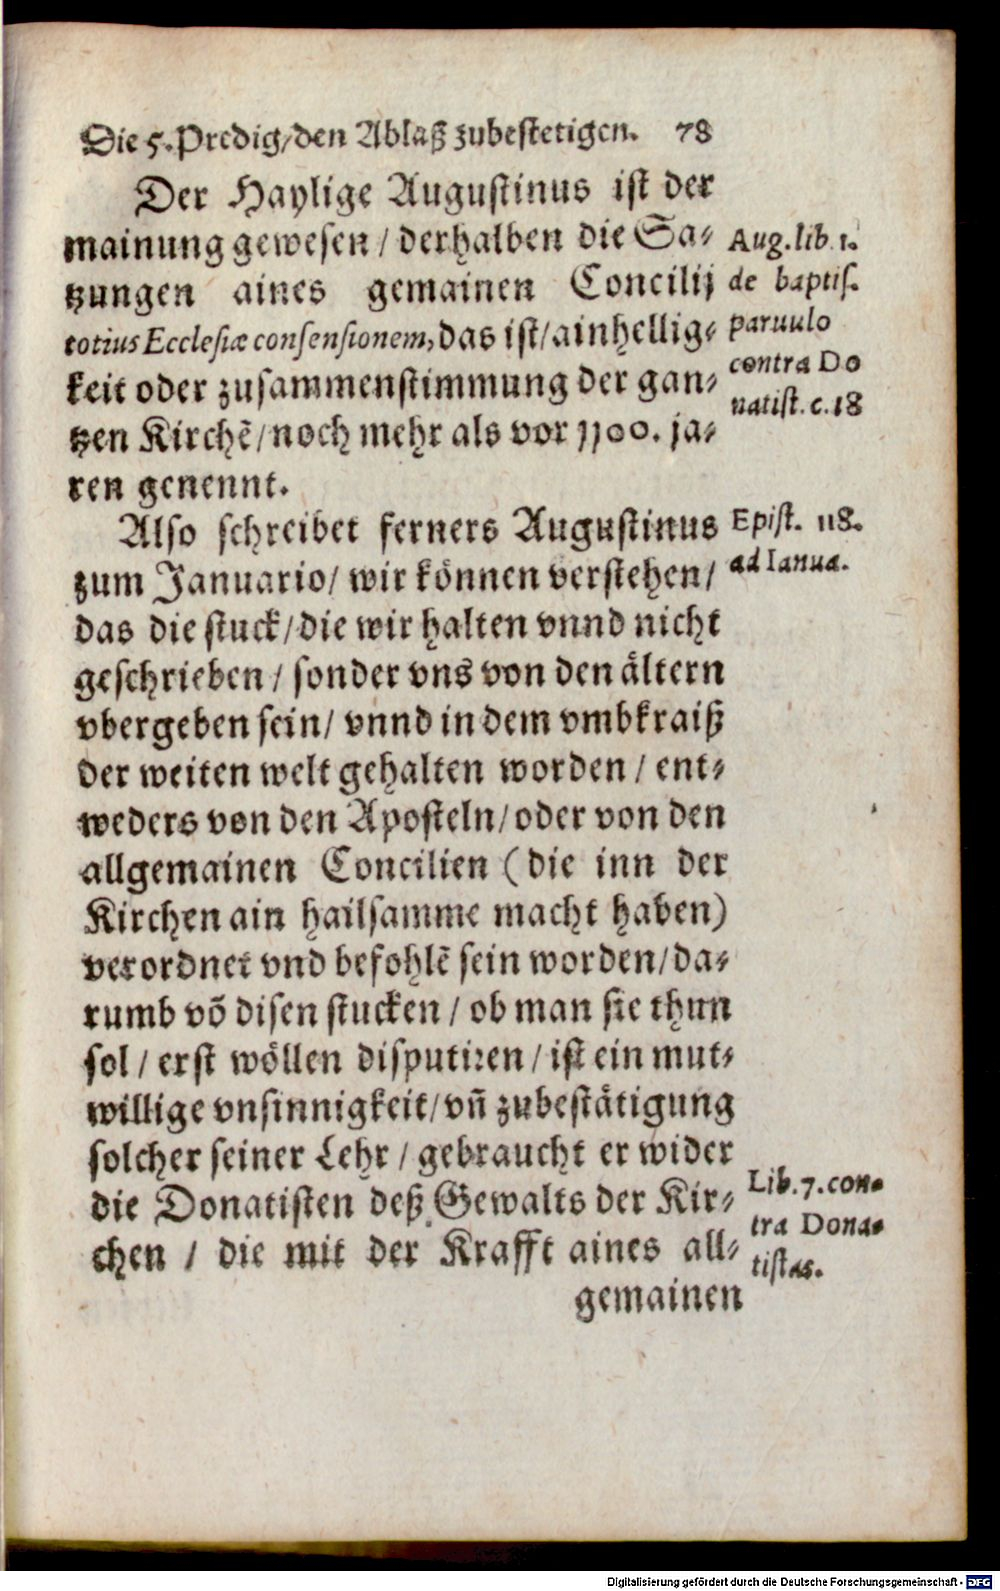 Die 5. Predig/den Ablaß zubestetigen. 78
Der Haylige Augustinus ist der
mainung gewesen / derhalben die Sa⸗
tzungen aines gemainen Concilij
totius Ecclesiæ consensionem, das ist/ainhellig⸗
keit oder zusammenstimmung der gan⸗
tzen Kirchẽ/noch mehr als vor 1100. ja⸗
ren genennt.
Aug. lib 1.
de baptis.
paruulo
contra Do
natist. c. 18
Also schreibet ferners Augustinus
zum Januario/ wir können verstehen/
das die stuck/die wir halten vnnd nicht
geschrieben / sonder vns von den ältern
vbergeben sein/ vnnd in dem vmbkraiß
der weiten welt gehalten worden / ent⸗
weders von den Aposteln/oder von den
allgemainen Concilien (die inn der
Kirchen ain hailsamme macht haben)
verordnet vnd befohlẽ sein worden/da⸗
rumb võ disen stucken / ob man sie thun
sol / erst wöllen disputiren / ist ein mut⸗
willige vnsinnigkeit/vñ zubestätigung
solcher seiner Lehr / gebraucht er wider
die Donatisten deß Gewalts der Kir⸗
chen / die mit der Krafft aines all⸗
gemainen
Epist. 118.
ad Ianua.
Lib. 7. con⸗
tra Dona⸗
tistas.
Digitalisierung gefördert durch die Deutsche Forschungsgemeinschaft - DFG